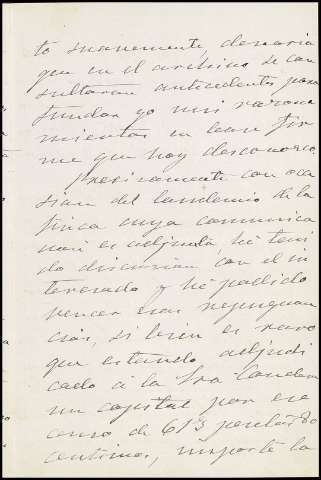 to suavemente, desearia
que en el archivo se con
sultaran antecedentes para
fundar yo mis razona
mientos en base fir
me que hoy desconozco.
Precisamente con oca
sion del laudemio de la
finca cuya comunica
cion es adjunta, hé teni
do discusion con el in
teresado y hé podido
vencer sus repugnan
cias, si bien es raro
que estando adjudi
cado á la Sra Condesa
un capital por ese
censo de 613 pesetas 80
centimos, importe la